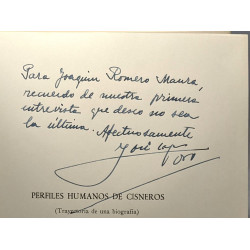 Para Joaquin Romero Maura,
recuerdo de nuestra primera
entrevista que deseo no sea
la última. Afectuosamente
José
PERFILES HUMANOS DE CISNEROS
(Trayectoria de una biografía)